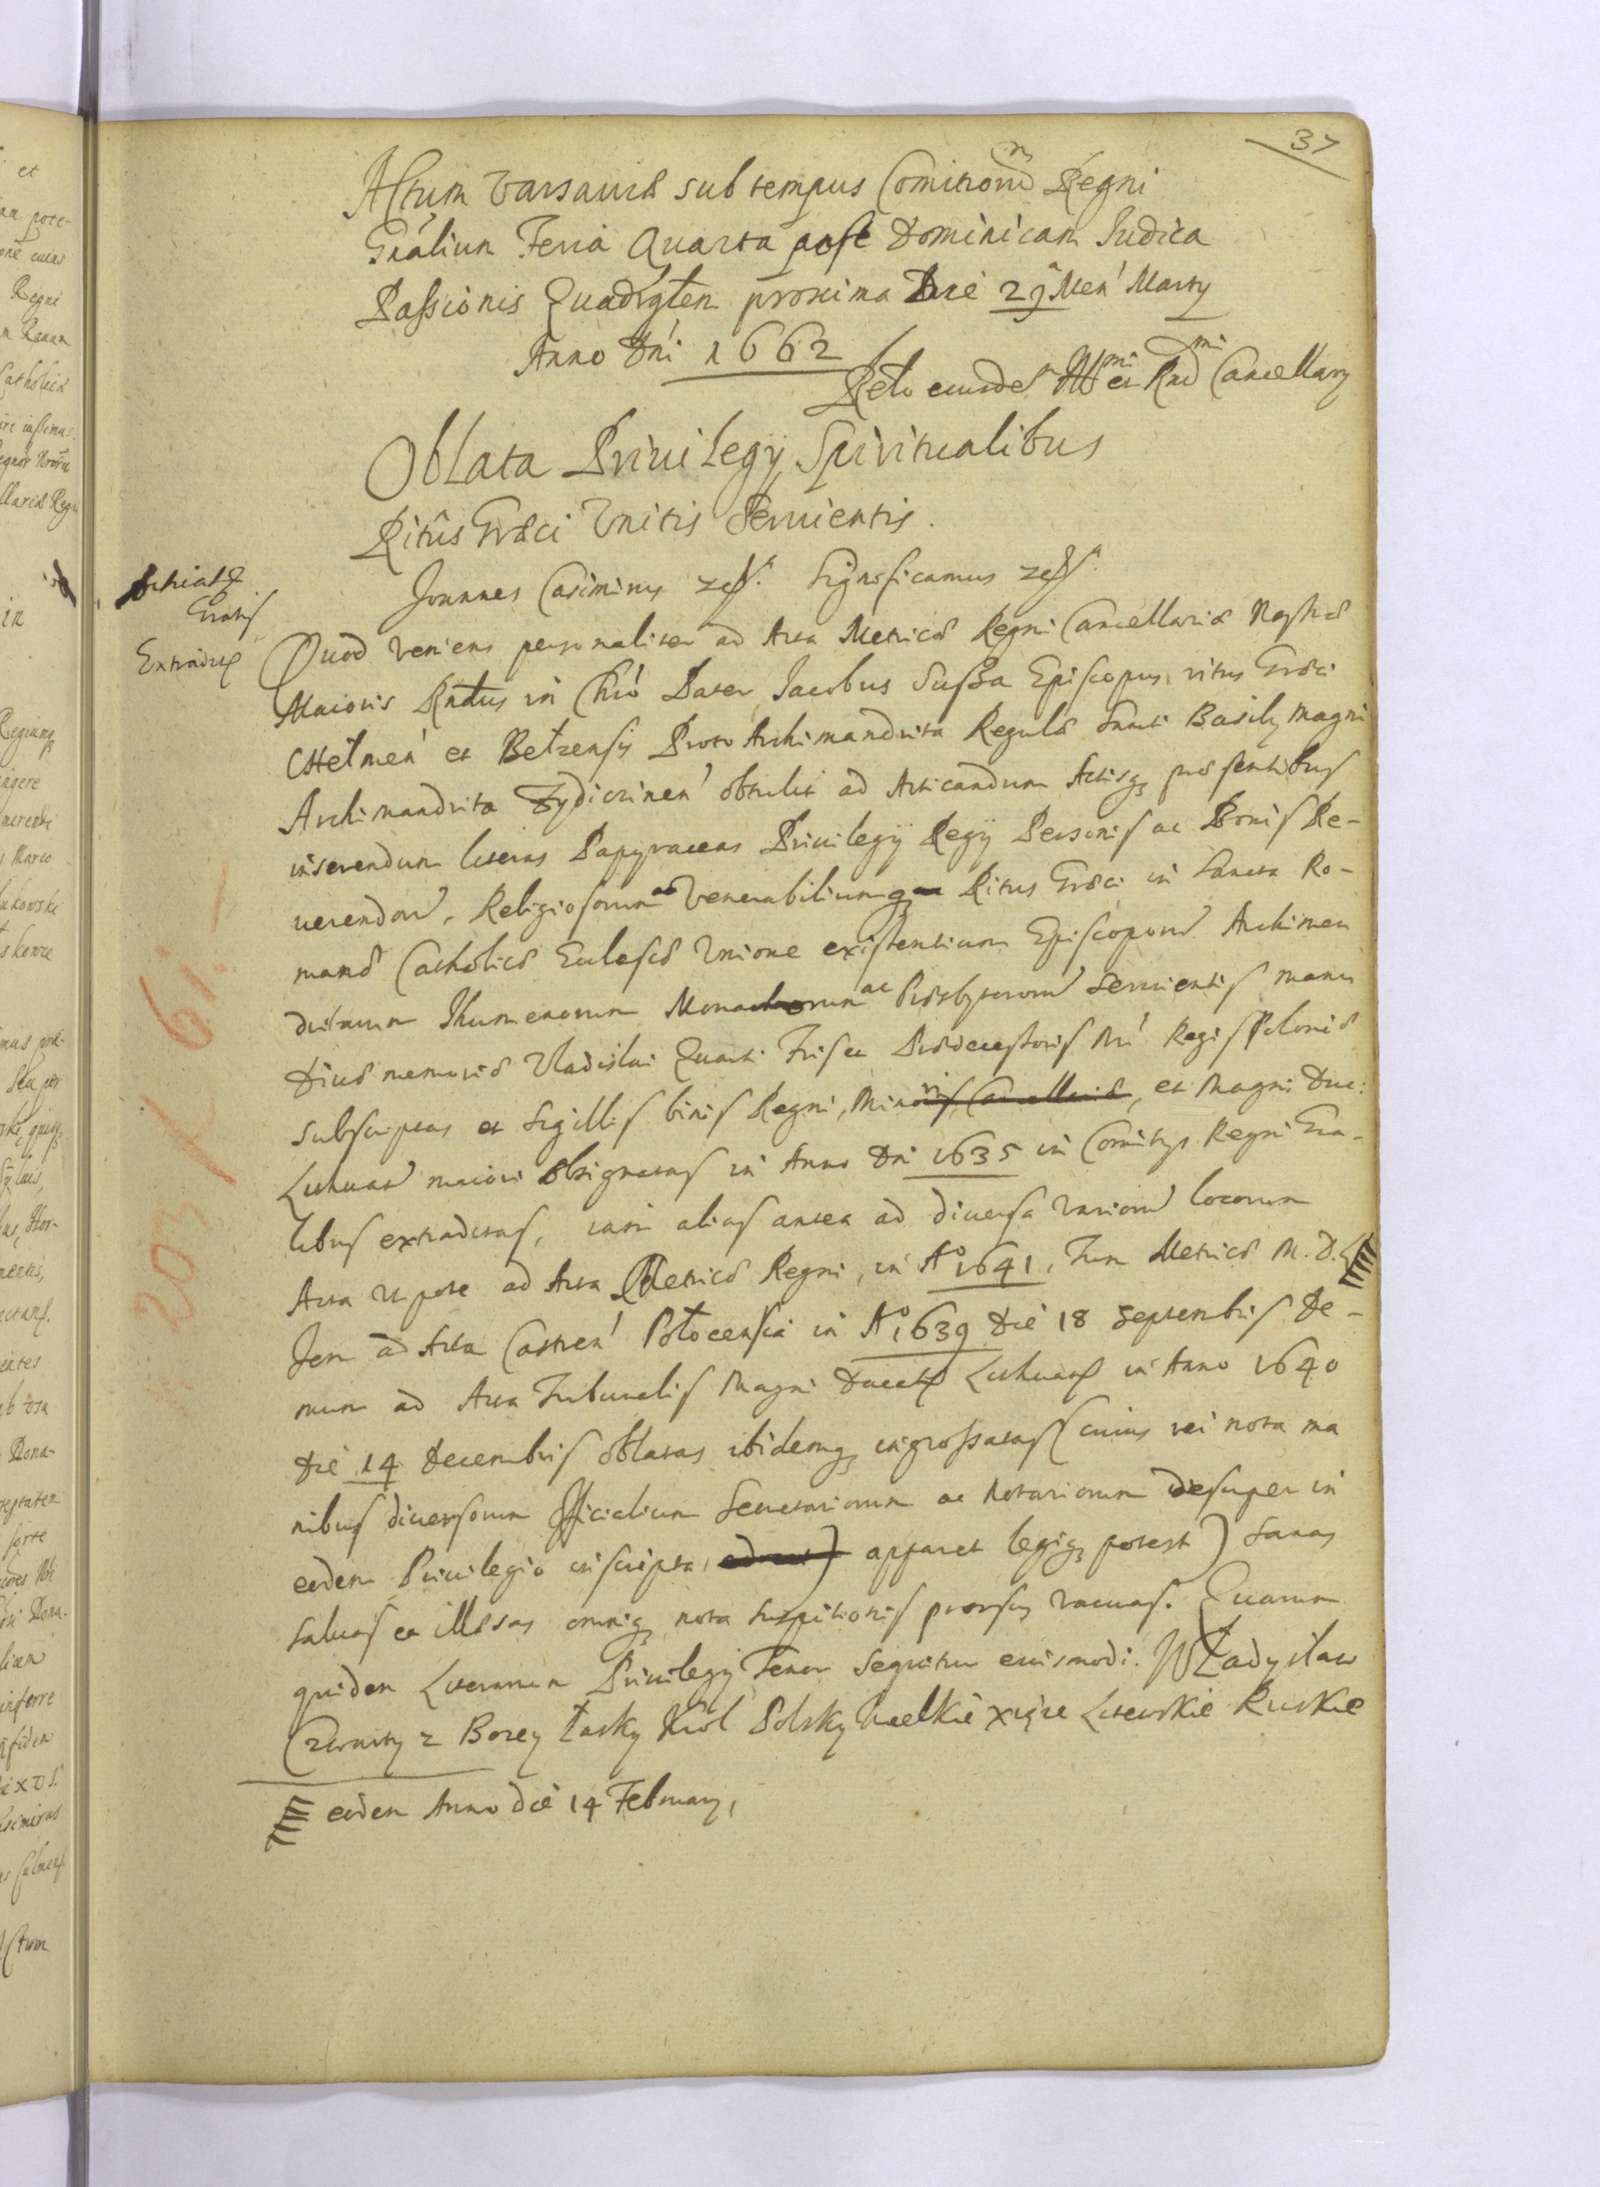 37
Actum Varsaviæ sub tempus Comitiorū Regni
Gnãlium Feria Quarta post Dominicam Iudica
Passionis Quadrgłen proxima Die 29ª Men' Marty
Anno Dni 1662
Relo eiusdem et Rnd Cancellary
Oblata Privilegy Spiritualibus
Ritûs Græci Vnitis Servientis.
Joannes Casimirus Significamus
Gratis
Extradit
Quod veniens personaliter ad Acta Metricæ Regni Cancellariæ Nostræ
Maioris Rndus in Chrō Pater Jacobus Sussza Episcopus ritus Græci
CHełmen' et Bełzensis Proto Archimandrita Regulæ Sancti Basily Magni
Archimandrita Zydiczinen' obtulit ad Acticandum Actisq; præsentibus
inserendum literas Papyraceas Privilegy Regy Personis ac Bonis Re-
verendorū, Religiosorum Venerabiliumq; Ritus Græci in Sancta Ro-
manæ Catholicæ Ecclesiæ Vnione existentium Episcoporū Archiman
dritarum Ihumenorum Monachorum ac Præsbyterorū Servientis manu
Divæ memoriæ Vladislai Quarti Fris et Prædecessoris Nri Regis Poloniæ
subscriptas et Sigillis binis Regni, Minoris Cancellariæ, et Magni Duc:
Lithuaniæ maiori obsignatas in Anno Dni 1635 in Comitys Regni Gna-
libus extraditas, iam alias antea ad diversa variorū locorum
Acta Utpote ad Acta Metricæ Regni, in Aº 1641, Tum Metricæ M. D. L.
Item ad Acta Castren' Połocensia in Aº 1639 Die 18 Septembris De-
mum ad Acta Tribunalis Magni Ducatus Lithuaniæ in Anno 1640
Die 14 Decembris oblatas ibidemq; ingrossatas (cuius rei nota ma
nibus diversorum Officialium Secretariorum ac Notariorum desuper in
eodem Privilegio inscripta, apparet legiq; potest) Sanas
salvas et illæsas omniq; nota suspitionis prorsus vacuas. Quarum
quidem Literarum Privilegy Tenor Sequitur eiusmodi. Władysław
Czwarty z Bozey Łasky Krol Polsky Wielkie Xiąze Litewskie Ruskie
eodem Anno die 14 February,
203 / 61.